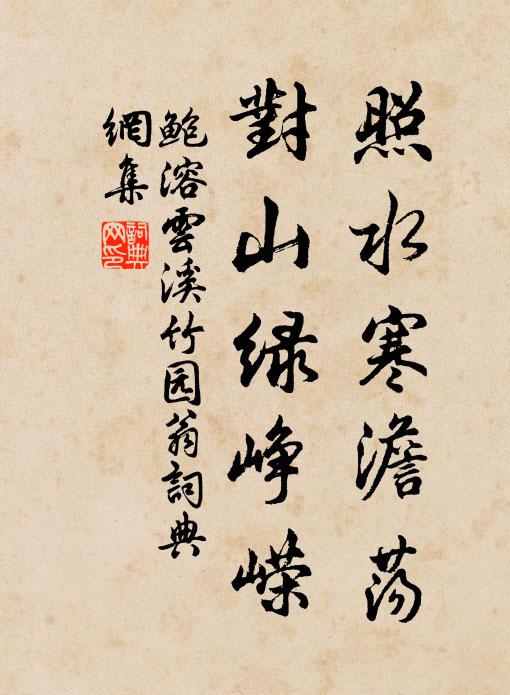 照水寒澹荡
對山緑峥嵘
鲍溶雲溪竹园翁詞典
網集
詞典
网印